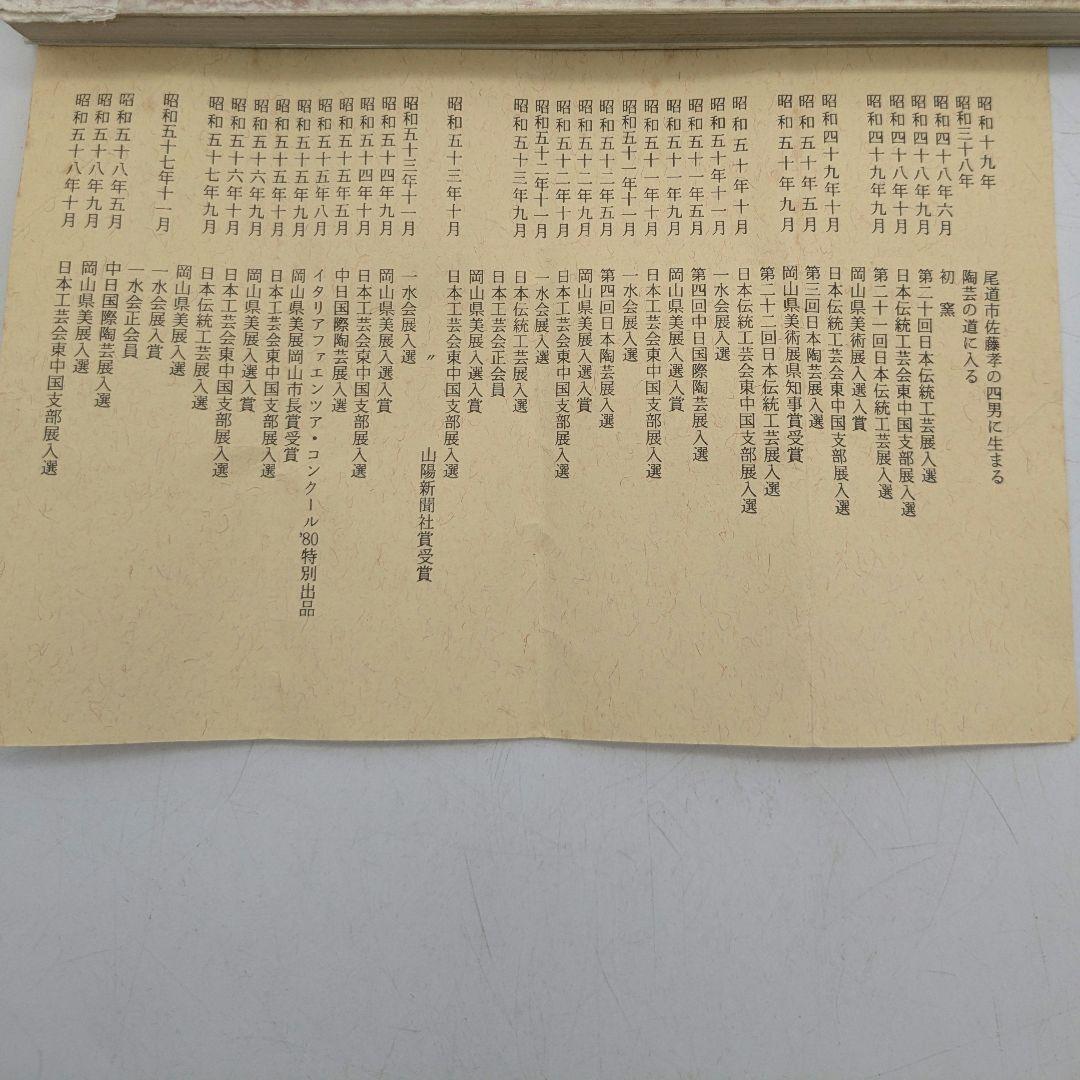 昭和十九年　尾道市佐藤孝の四男に生まる
昭和三十八年　陶芸の道に入る
昭和四十八年六月　初　窯
昭和四十八年九月　第二十回日本伝統工芸展入選
昭和四十八年十月　日本伝統工芸会東中国支部展入選
昭和四十九年九月　第二十一回日本伝統工芸展入選
岡山県美術展入選入賞
昭和四十九年十月　日本伝統工芸会東中国支部展入選
昭和五十年五月　第三回日本陶芸展入選
昭和五十年九月　岡山県美術展県知事賞受賞
第二十二回日本伝統工芸展入選
昭和五十年十月　日本伝統工芸会東中国支部展入選
昭和五十年十一月　一水会展入選
昭和五十一年五月　第四回中日国際陶芸展入選
昭和五十一年九月　岡山県美展入選入賞
昭和五十一年十月　日本工芸会東中国支部展入選
昭和五十一年十一月　一水会展入選
昭和五十二年五月　第四回日本陶芸展入選
昭和五十二年九月　岡山県美展入選入賞
昭和五十二年十月　日本工芸会東中国支部展入選
昭和五十二年十一月　一水会展入選
昭和五十三年九月　日本伝統工芸展入選
日本工芸会正会員
岡山県美展入選入賞
昭和五十三年十月　日本工芸会東中国支部展入選
〃　山陽新聞社賞受賞
昭和五十三年十一月　一水会展入選
昭和五十四年九月　岡山県美展入選入賞
昭和五十四年十月　日本工芸会東中国支部展入選
昭和五十五年五月　中日国際陶芸展入選
昭和五十五年八月　イタリアファエンツア・コンクール'80特別出品
昭和五十五年九月　岡山県美展岡山市長賞受賞
昭和五十五年十月　日本工芸会東中国支部展入選
昭和五十六年九月　岡山県美展入選入賞
昭和五十六年十月　日本工芸会東中国支部展入選
昭和五十七年九月　日本伝統工芸展入選
岡山県美展入選
昭和五十七年十一月　一水会展入賞
一水会正会員
昭和五十八年五月　中日国際陶芸展入選
昭和五十八年九月　岡山県美展入選
昭和五十八年十月　日本工芸会東中国支部展入選